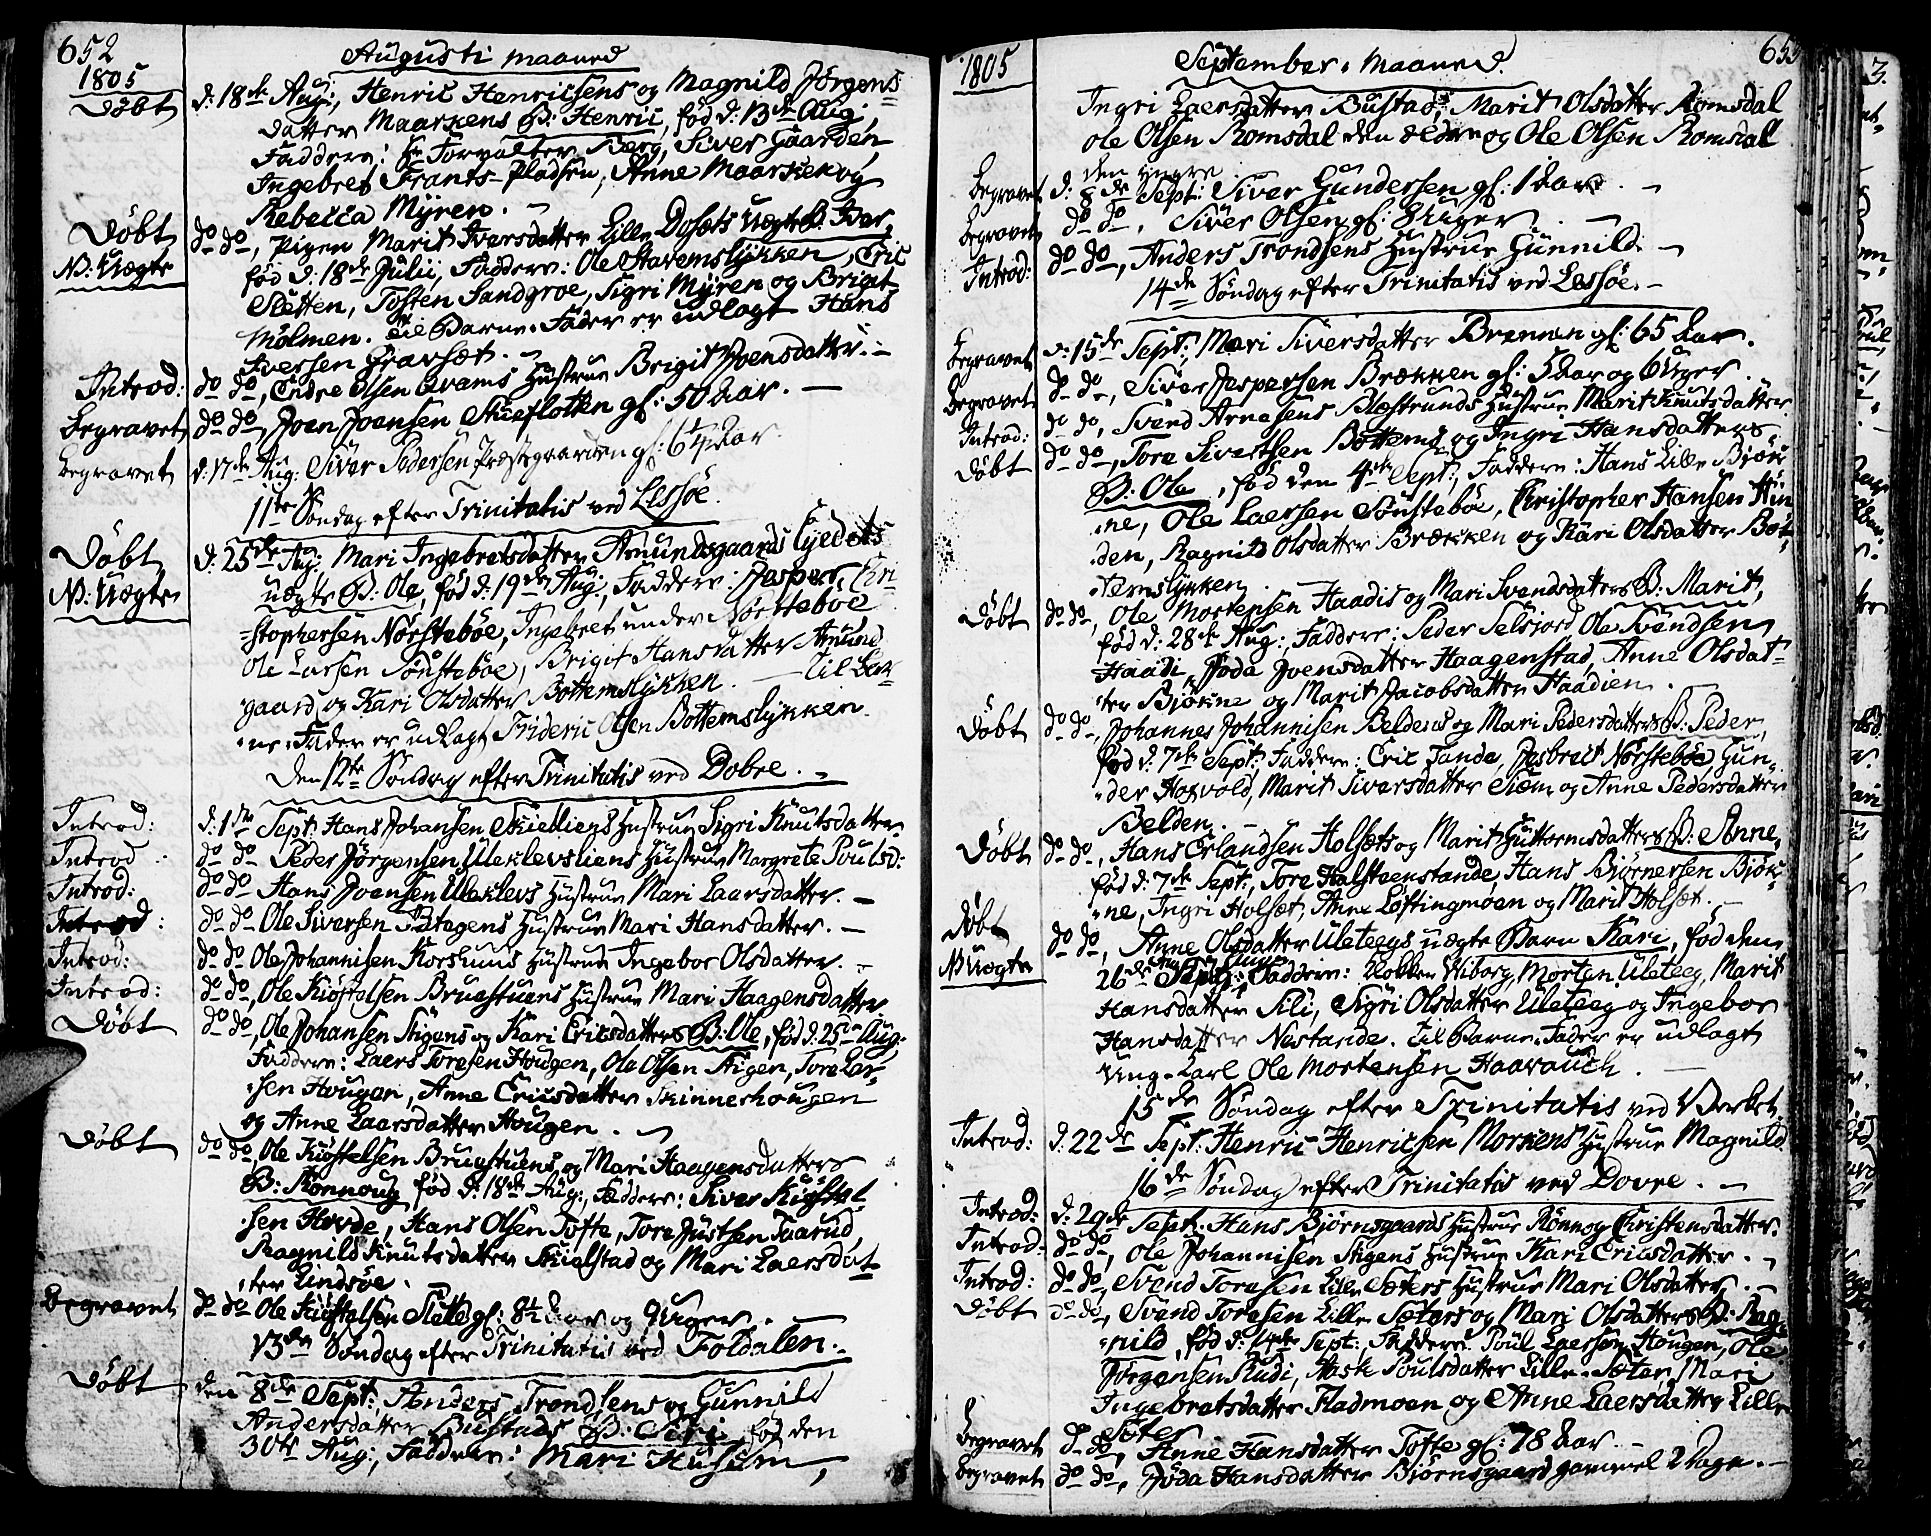 652
1805
Augusti maaned
Döbt d: 18de Aug:, Henric Henricsens og Magnild Jörgens=
datter Maarkens B: Henric, fød d: 13de Aug:,
Faddere: Hr Forvalter Berg, Siver Gaarden,
Ingebret Frants-Pladsen, Anne Maarken og
Rebecca Myren.
Döbt do do, Pigen Marit Iversdatter Lille Dosets Uægte B. Iver,
N: Uægte fød d: 18de Julii, Faddere: Ole Stavemslykken, Eric
Sletten, Tosten Sandgroe, Sigri Myren og Brigit
Molmen. Til Barne-Fader er udlagt Hans
Iversen Gravsæt.
Introd: do do, Endre Olsen Qvams Hustrue Brigit Joensdatter.
Begravet do do, Joen Joensen Skieflotten gl: 50 Aar.
Begravet d: 17de Aug: Siver Pedersen Præstegaarden gl: 64 Aar.
11te Søndag efter Trinitatis ved Lessøe.
Döbt d: 25de Aug: Mari Ingebretsdatter Amundsgaards Ejedets
N: Uægte uægte B: Ole, fød d: 19de Aug:, Faddere: Jesper Chri-
stophersen Norsteböe, Ingebret under Norstebøe
Ole Larsen Sønstebøe, Brigit Hansdatter Amund
gaard og Kari Olsdatter Bottemslykken. — Til Bar-
ne-Fader er udlagt Frideric Olsen Bottemslykken.
Den 12te Søndag efter Trinitatis ved Dovre.
Introd: d: 1ste Sept: Hans Johansen Skiedliens Hustrue Sigri Knutsdatter.
Introd: do do Peder Jörgensen Uleklevsliens Hustrue Margrete Poulsd:
Introd: do do Hans Joensen Uleklevs Hustrue Mari Laarsdatter.
Introd: do do Ole Siversen Patagens Hustrue Mari Hansdatter.
Introd: do do Ole Johannisen Korshuus Hustrue Ingebor Olsdatter.
Introd: do do, Ole Kiøstelsen Bruestuens Hustrue Mari Haagensdatter
Döbt do do, Ole Johansen Stigens og Kari Ericsdatters B: Ole, fød d: 25de Aug:
Faddere: Laers Toresen Hougen, Ole Olsen Stigen, Tore Lar-
sen Hougen, Anne Ericsdatter Skinneshougen
og Anne Laarsdatter Hougen.
Döbt do do Ole Kiøstelsen Bruestuens og Mari Haagensdatters
B: Rønnoug fød d: 18de Aug:, Faddere: Siver Kiøstel-
sen Hovde, Hans Olsen Tofte, Tore Justsen Taarud,
Ragnild Knutsdatter Skielstad og Mari Laersdat-
ter Lindsøe.
Begravet do do Ole Kiøstelsen Slette gl: 8½ Aar og 9 Uger.
13de Søndag efter Trinitatis ved Foldalen.
Döbt den 8de Sept: Anders Trondsens og Gunnild
Andersdatter Bustads B: Siri fød den
30te Aug:, Faddere: Mari Husum,
1805
September-maaned.
653
Ingri Laersdatter Bustad, Marit Olsdatter Romsdal
Ole Olsen Romsdal den ældre og Ole Olsen Romsdal
den yngre.
Begravet d: 8de Sept: Siver Gundersen gl: 1 Aar.
Begravet do do, Siver Olsen gl: Uger.
Introd: do do, Anders Trondsens Hustrue Gunnild.
14de Søndag efter Trinitatis ved Lessøe.
Begravet d: 15de Sept: Mari Siversdatter Brennen gl: 65 Aar.
Begravet do do, Siver Jespersen Brækken gl: 5 Aar og 6 Uger.
Introd: do do, Svend Arnesens Blæstrunds Hustrue Marit Knutsdatter
Döbt do do, Tore Sivertsen Bottems og Ingri Hansdatters
B: Ole, fød den 4de Sept:, Faddere: Hans Lille Biørk
ne, Ole Laersen Sønstebøe, Christopher Hansen Hun
den, Ragnild Olsdatter Brækken og Kari Olsdatter Bot-
temslykken.
Döbt do do, Ole Mortensen Haadis og Mari Svendsdatters B: Marit,
fød d: 28de Aug:, Faddere: Peder Selsjord, Ole Svendsen
Haadi, Joda Joensdatter Haagenstad, Anne Olsdat-
ter Biørkne og Marit Jacobsdatter Haadien.
Döbt do do, Johannes Johannisen Beldens og Mari Pedersdatters B: Peder,
fød d: 7de Sept: Faddere: Eric Tande, Jesbret Norstebøe, Gun-
der Hosvold, Marit Siversdatter Siem og Anne Pedersdatter
Belden.
Döbt do do, Hans Erlandsen Holsæts og Marit Guttormsdatters B: Anne,
fød d: 7de Sept:, Tore Halsteenstande, Hans Biørnersen Biøk-
ne, Ingri Holsæt, Anne Løftingmoen og Marit Holsæt.
Döbt do do, Anne Olsdatter Uleteegs uægte Barn Kari, fød den
N: Uægte 26de Faddere: Klokker Wiborg, Morten Uleteeg, Marit
Hansdatter Sili, Sigri Olsdatter Uleteeg og Ingebor
Hansdatter Nestande. Til Barne-Fader er udlagt
Ung-Karl Ole Mortensen Haavauck.
15de Søndag efter Trinitatis ved Verket.
Introd: d: 22de Sept: Henric Henricsen Morkens Hustrue Magnild
16de Søndag efter Trinitatis ved Dovre.
Introd: d: 29de Sept: Hans Bjørnsgaards Hustrue Rønnog Christensdatter.
Introd: do do, Ole Johannisen Stigens Hustrue Kari Ericsdatter.
Introd: do do, Svend Toresen Lille Sæters Hustrue Mari Olsdatter,
Döbt do do, Svend Toresen Lille Sæters og Mari Olsdatters B: Rag-
nild, fød d: 14de Sept:, Faddere: Poul Laersen Hougen, Ole
Jørgensen Rudi, Ask Poulsdatter Lille-Sæter, Mari
Ingebretsdatter Fladmoen og Anne Laersdatter Lille
Sæter.
Begravet do do, Anne Hansdatter Tofte gl: 78 Aar.
Begravet do do, Joda Hansdatter Bjørnsgaard gammel 2 Dage.